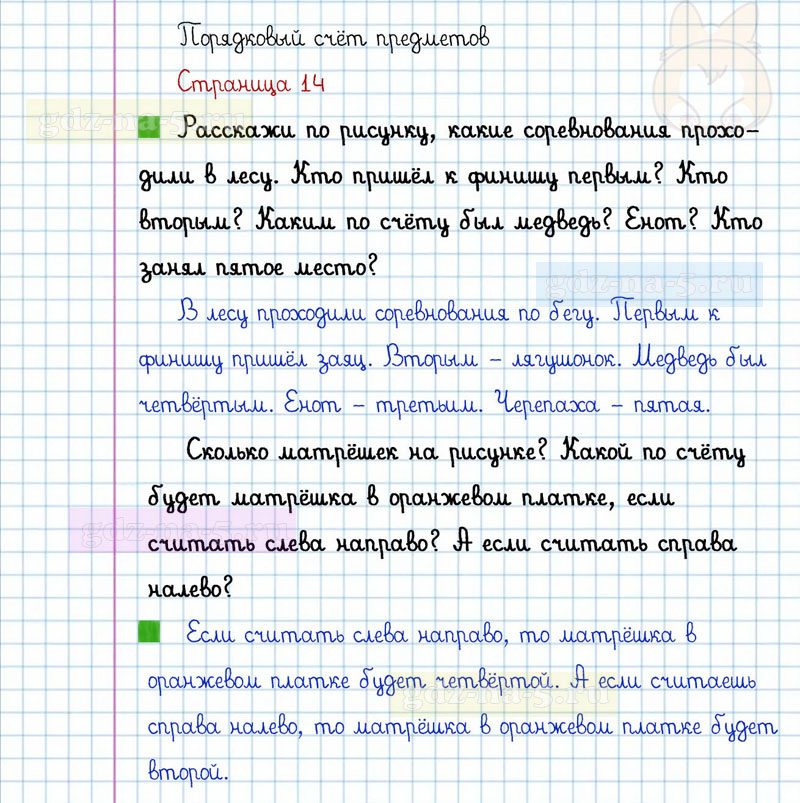 Порядковый счёт предметов
Страница 14
gdz-na-5.ru
Расскажи по рисунку, какие соревнования прохо-
дили в лесу. Кто пришёл к финишу первым? Кто
вторым? Каким по счёту был медведь? Енот? Кто
занял пятое место?
gdz-na-5.ru
В лесу проходили соревнования по бегу. Первым к
финишу пришёл заяц. Вторым – лягушонок. Медведь был
четвёртым. Енот – третьим. Черепаха – пятая.
Сколько матрёшек на рисунке? Какой по счёту
будет матрёшка в оранжевом платке, если
gdz-na-5.ru
считать слева направо? А если считать справа
налево?
Если считать слева направо, то матрёшка в
оранжевом платке будет четвёртой. А если считаешь
gdz-na-5.ru
справа налево, то матрёшка в оранжевом платке будет
второй.